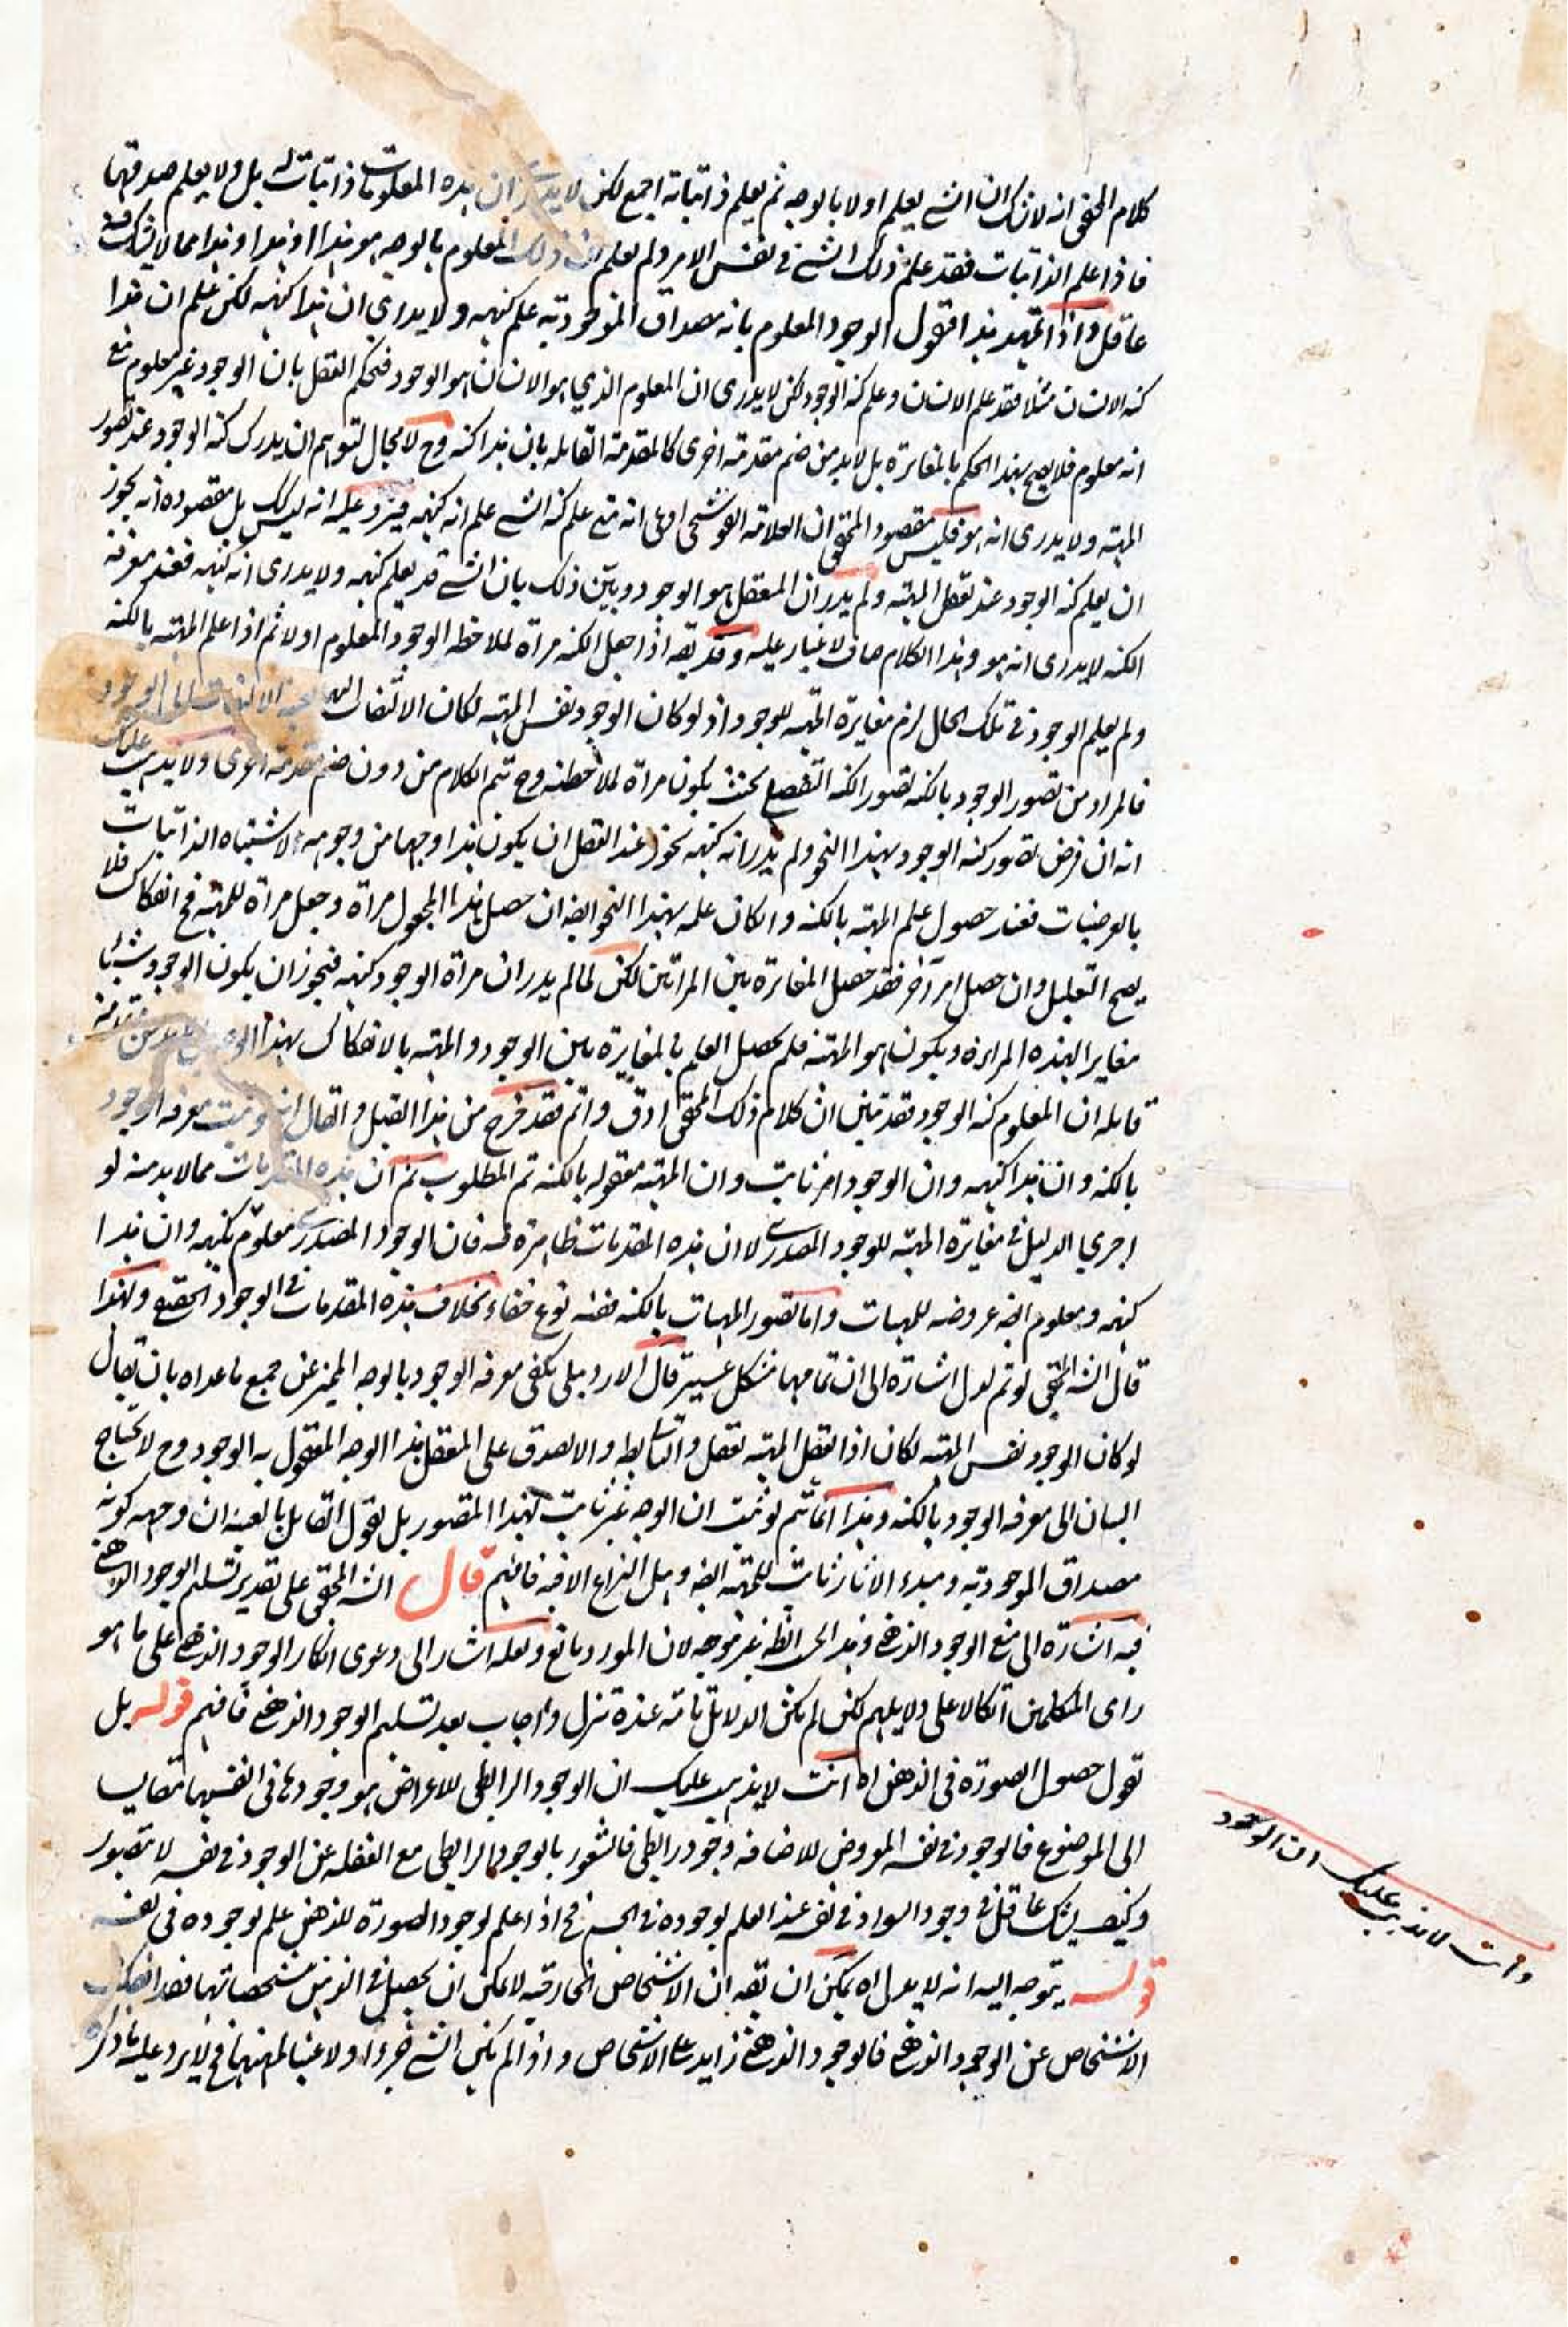 كلام المحقق انه لا شك ان الشے يعلم اولا بالوجه ثم يعلم ذاتياته اجمع لكن لا يدرى ان هذه المعلومات ذاتيات له بل ولا يعلم صدقها
فاذا علم الذاتيات فقد علم ذلك الشے فى نفس الامر ولم يعلم ان ذلك المعلوم بالوجه هو هذا او هذا وهذا مما لا يشك فيه
عاقل واذا تمهد هذا فنقول الوجود المعلوم بانه مصداق الموجودية علم كنهه ولا يدرى ان هذا كنهه لكن علم ان هذا
كنه الانسان مثلا فقد علم الانسان وعلم كنه الوجود لكن لا يدرى ان المعلوم الذي هو الانسان هو الوجود فحكم العقل بان الوجود غير معلوم مع
انه معلوم فلا يصح بهذا الحكم بالمغايرة بل لا بد من ضم مقدمة اخرى كالمقدمة القايلة بان هذا كنه وح لا مجال لتوهم ان يدرك كنه الوجود عند تصور
المهية ولا يدرى انه هو فليس مقصود المحقق ان العلامة القوشجى ادعى انه متے علم كنه الشے علم انه كنهه فيرد عليه انه ليس كك بل مقصوده انه يجوز
ان يعلم كنه الوجود عند تعقل المهية ولم يدر ان المعقل هو الوجود وبين ذلك بان الشے قد يعلم كنهه ولا يدرى انه كنهه فعند معرفة
الكنه لا يدرى انه هو وهذا الكلام صاف لا غبار عليه وقد يقه اذا جعل الكنه مرآة لملاحظة الوجود المعلوم اولا ثم اذا علم المهية بالكنه
ولم يعلم الوجود فى تلك الحال لزم مغايرة المهية للوجود اذ لو كان الوجود نفس المهية لكان الالتفات اليها بعينه الالتفات الى الوجود
فالمراد من تصور الوجود بالكنه تصور الكنه التفصيلى بحيث يكون مرآة لملاحظته وح تتم الكلام من دون ضم مقدمة اخرى ولا يذهب عليك
انه ان فرض تصور كنه الوجود بهذا النحو ولم يدر انه كنهه يجوز عند العقل ان يكون هذا وجها من وجوهه لاشتباه الذاتيات
بالعرضيات فعند حصول علم المهية بالكنه وانكان علمه بهذا النحو ايضه ان حصل هذا المجعول مرآة وجعل مرآة للمهية فح انفكاك فلا
يصح التعليل وان حصل امر آخر فقد حصل المغايرة بين المرآتين لكن لما لم يدر ان مرآة الوجود كنهه فيجوز ان يكون الوجود شيئا
مغايرا لهذه المرآة ويكون هو المهية فلم يحصل العلم بالمغايرة بين الوجود والمهية بالانفكاك بهذا الوجه فلا بد من مقدمة
قايلة ان المعلوم كنه الوجود فقد تبين ان كلام ذلك المحقق ادق واتم فقد خرج من هذا القيل والقال انه لو ثبت معرفة الوجود
بالكنه وان هذا كنهه وان الوجود امر ثابت وان المهية معقوله بالكنه تم المطلوب ثم ان هذه المقدمات مما لا بد منه لو
اجري الدليل فى مغايرة المهية للوجود المصدرے لا ان هذه المقدمات ظاهرة فيه فان الوجود المصدرے معلوم بكنهه وان هذا
كنهه ومعلوم ايضه عروضه للمهيات واما تصور المهيات بالكنه ففيه نوع خفاء بخلاف هذه المقدمات فى الوجود الحقيقے ولهذا
قال الشه المحقق لو تم لدل اشارة الى ان تمامها مشكل عسير قال الاردبيلى يكفى معرفة الوجود بالوجه المميز عن جميع ما عداه بان يقال
لو كان الوجود نفس المهية لكان اذا تعقل المهية تعقل والتالے بط والا لصدق على المعقل هذا الوجه المعقول به الوجود وح لا يحتاج
البيان الى معرفة الوجود بالكنه وهذا انما يتم لو ثبت ان الوجه غير ثابت لهذا المتصور بل يقول القايل بالعينية ان وجهه كونه
مصداق الموجودية ومبدء الآثار ثابت للمهية ايضه وهل النزاع الا فيه فافهم قال الشه المحقق على تقدير تسليم الوجود الذهنے
فيه اشارة الى منع الوجود الذهنے وهذا الى النظر غير موجه لان المورد مانع ولعله اشار الى دعوى انكار الوجود الذهنے على ما هو
راى المتكلمين اتكالا على دلايلهم لكن لم يكن الدلائل تامة عنده تنزل واجاب بعد تسليم الوجود الذهنے فافهم قوله بل
نقول حصول الصورة فى الذهن اه انت لا يذهب عليك ان الوجود الرابطى للاعراض هو وجودها فى انفسها مقايسا
الى الموضوع فالوجود فى نفسه المعروض للاضافة وجود رابطى فالشعور بالوجود الرابطى مع الغفلة عن الوجود فى نفسه لا يتصور
وكيف يشك عاقل فى وجود السواد فى نفسه عند العلم بوجوده فى الجسم فح اذا علم لوجود الصورة للذهن علم لوجوده فى نفسه
قوله يتوجه اليه انه لا يدل اه يمكن ان يقه ان الاشخاص الخارجية لا يمكن ان يحصل فى الذهن مشخصاتها فقد انفكت
الاشخاص عن الوجود الذهنے فالوجود الذهنے زايد على الاشخاص واذا لم يكن الشے جزءا ولا عينا لمهيتها فح لا يرد عليه ما ذكره
وانت لا يذهب عليك ان الوجود